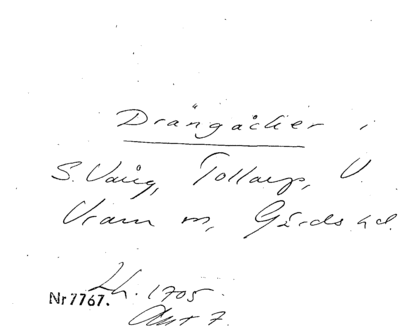 Drängåcker i
S. Vång, Tollarp, V.
Vram m, Gärds hd.
Lh. 1705.
Nr 7767.
Akt 7.